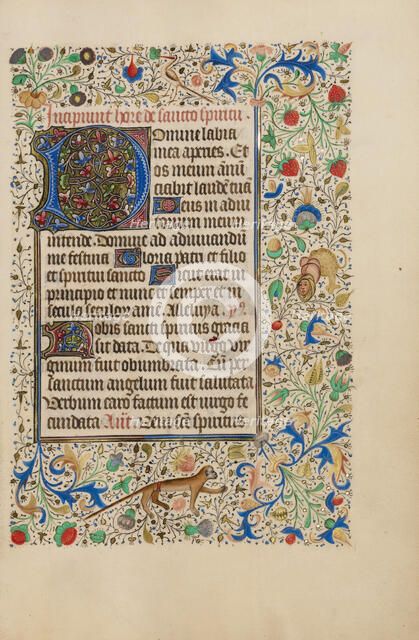 Incipiunt hore de sancto spiritu.
Domine labia
mea aperies. Et
os meum ānū
ciabit laudē tuā
Deus in adiu
torium meum
intende. Domine ad adiuuandū
me festina Gloria patri et filio
et spiritui sancto Sicut erat in
principio et nunc et semper et in
secula seculorū amen. Alleluya.
Nobis sancti spiritus gracia
sit data. De qua virgo vir
ginum fuit obumbrata. Cū per
sanctum angelum fuit salutata
Verbum caro factum est uirgo fe
cundata. Añ. Veni sancte spiritus